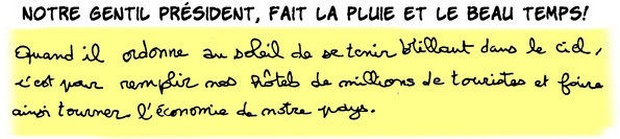 NOTRE GENTIL PRÉSIDENT, FAIT LA PLUIE ET LE BEAU TEMPS!
Quand il ordonne au soleil de se tenir brillant dans le ciel,
c'est pour remplir nos hôtels de millions de touristes et faire
ainsi tourner l'économie de notre pays.